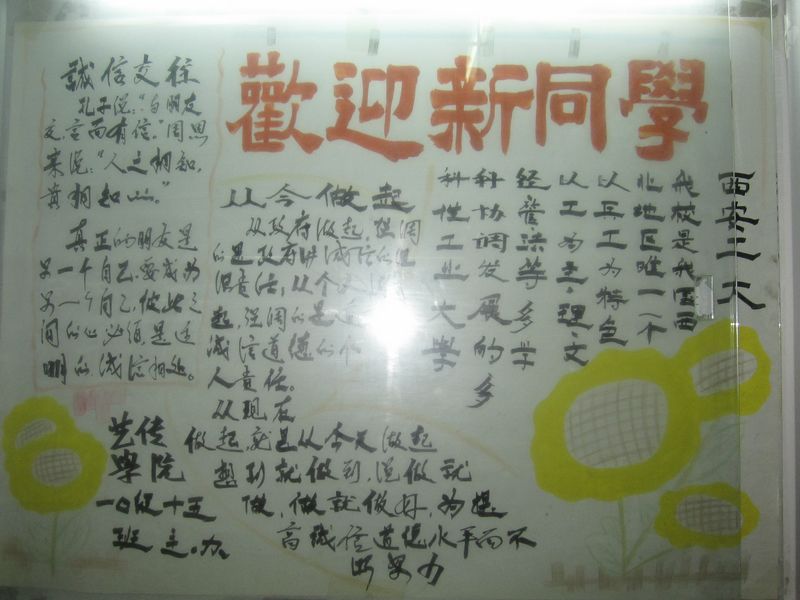 歡迎新同學
誠信交往
孔子说:“与朋友
交言而有信。”周恩
来说:“人之相知,
贵相知心。”
真正的朋友是
另一个自己,要成为
另一个自己,彼此之
间的心必须是透
明的诚信相处。
从今做起
从政府做起,强调
的是政府讲诚信的
起,强调的是
诚信道德的个
人责任。
从现在
做起,就是从今天做起
想到就做到,说做就
做,做就做好,为提
高诚信道德水平而不
断努力
西安工大
我校是我国西
北地区唯一一个
以兵工为特色
以工为主,理文
经管法等多学
科协调发展的多
科性工业大學
艺传
學院
一〇级十五
班 主办